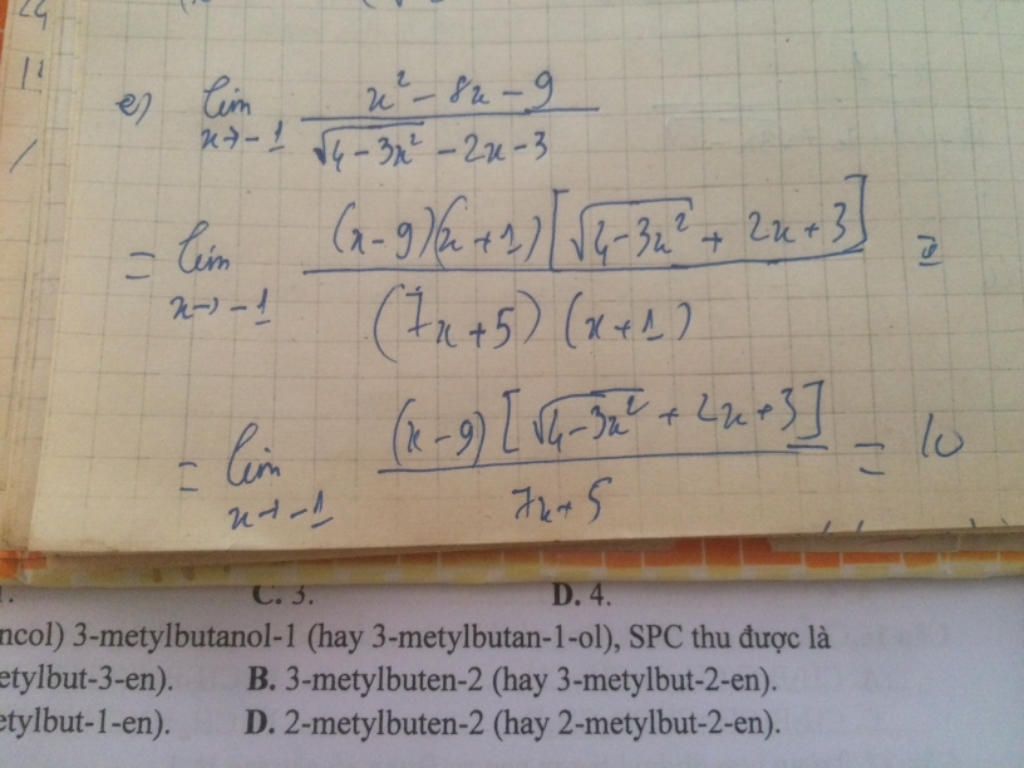 24
e) lim x→-1 (x² - 8x - 9) / (√(4-3x²) - 2x - 3)
= lim x→-1 (x-9)(x+1)[√(4-3x²) + 2x+3] / ((7x+5)(x+1)) =
= lim x→-1 (x-9)[√(4-3x²) + 2x+3] / (7x+5) = 10
C. 3. D. 4.
ncol) 3-metylbutanol-1 (hay 3-metylbutan-1-ol), SPC thu được là
etylbut-3-en). B. 3-metylbuten-2 (hay 3-metylbut-2-en).
etylbut-1-en). D. 2-metylbuten-2 (hay 2-metylbut-2-en).